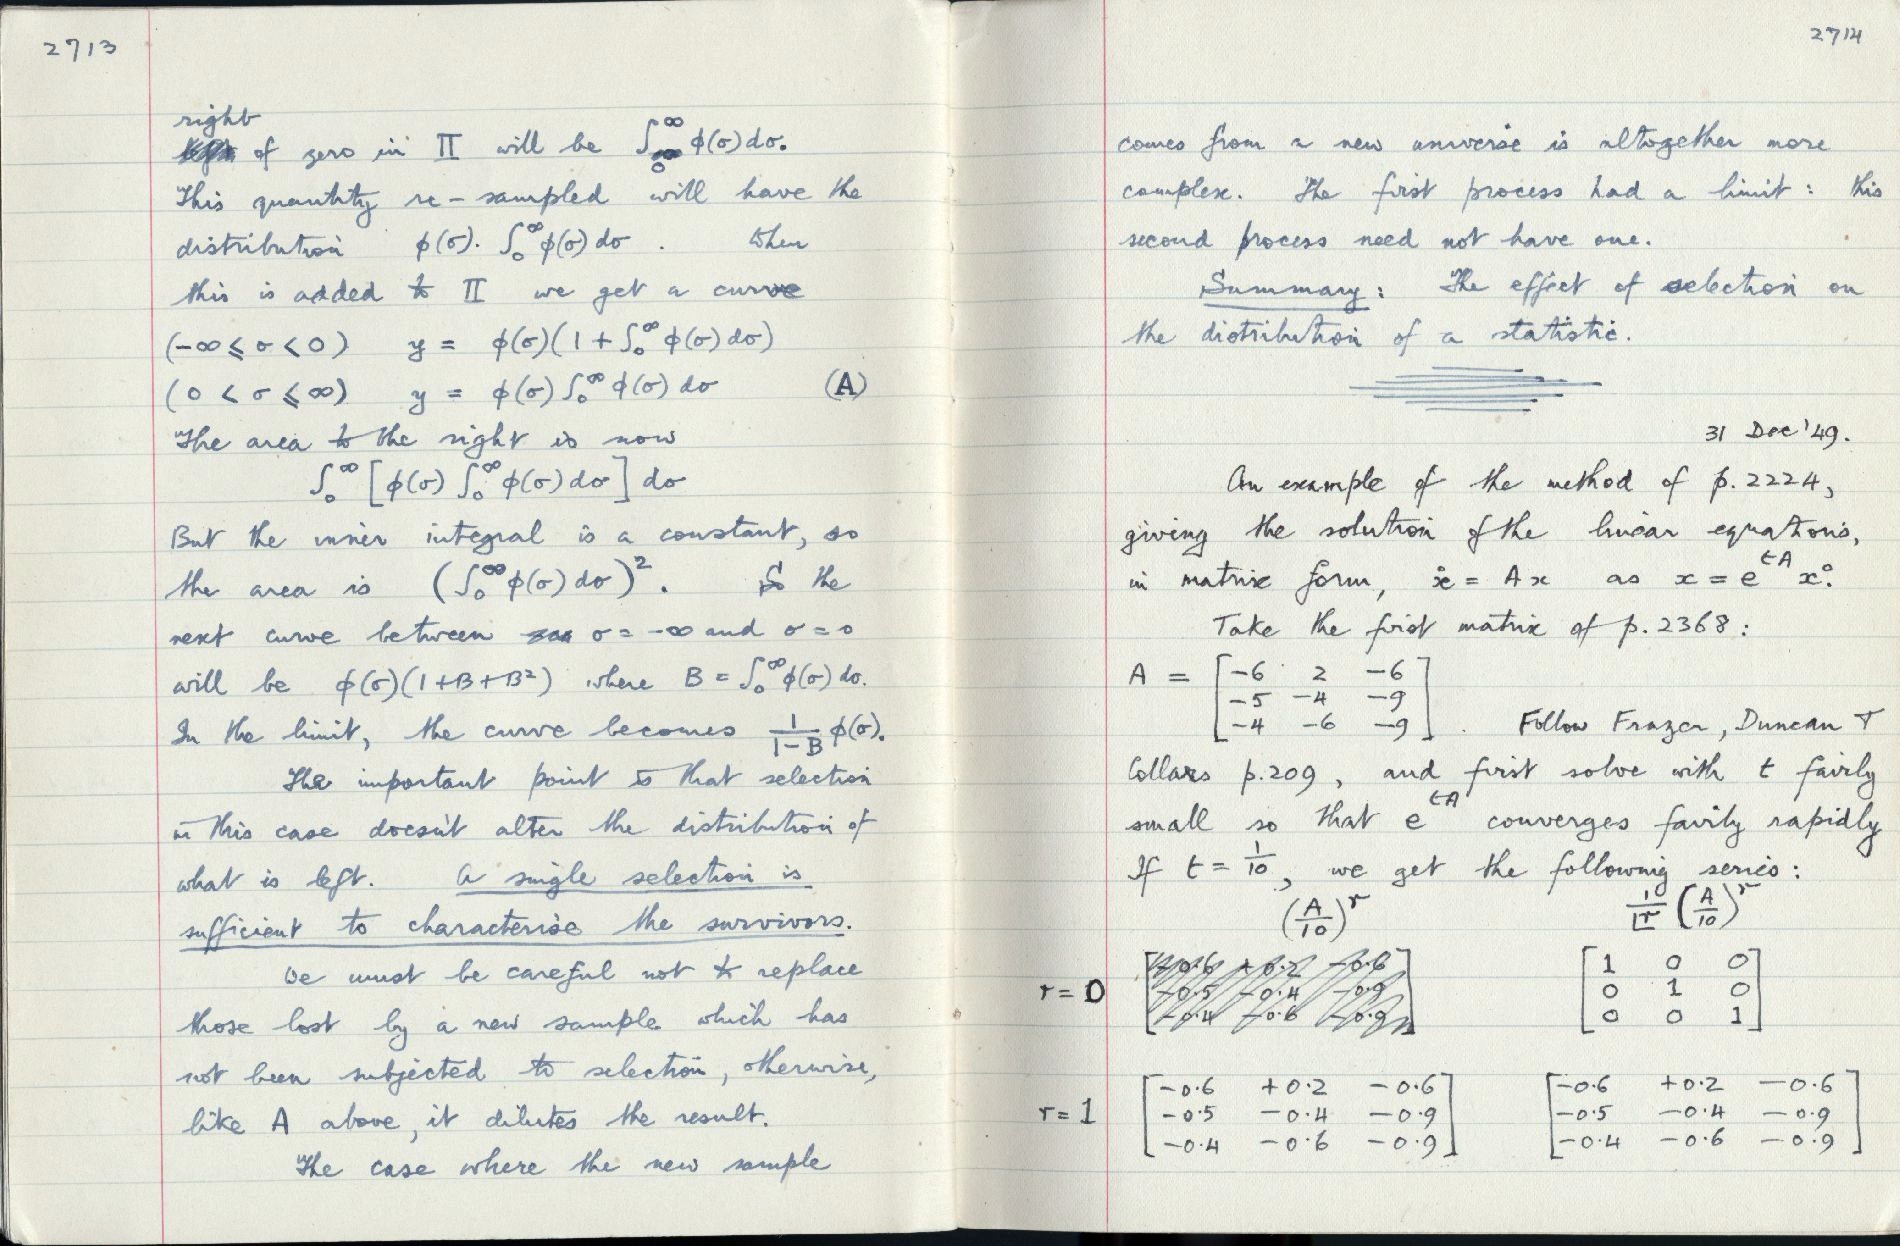 2713
right
of zero in II will be ∫₀^∞ φ(σ)dσ.
This quantity re-sampled will have the
distribution φ(σ). ∫₀^∞ φ(σ)dσ . When
this is added to II we get a curve
(-∞ ⩽ σ < 0) y = φ(σ)(1 + ∫₀^∞ φ(σ)dσ)
(0 < σ ⩽ ∞) y = φ(σ) ∫₀^∞ φ(σ)dσ (A)
The area to the right is now
∫₀^∞ [φ(σ) ∫₀^∞ φ(σ)dσ] dσ
But the inner integral is a constant, so
the area is (∫₀^∞ φ(σ)dσ)². So the
next curve between σ = -∞ and σ = 0
will be φ(σ)(1+B+B²) where B = ∫₀^∞ φ(σ)dσ.
In the limit, the curve becomes 1/(1-B) φ(σ).
The important point is that selection
in this case doesn't alter the distribution of
what is left. A single selection is
sufficient to characterise the survivors.
We must be careful not to replace
those lost by a new sample which has
not been subjected to selection, otherwise,
like A above, it dilutes the result.
The case where the new sample
2714
comes from a new universe is altogether more
complex. The first process had a limit: this
second process need not have one.
Summary: The effect of selection on
the distribution of a statistic.
31 Dec '49.
An example of the method of p.2224,
giving the solution of the linear equations,
in matrix form, ẋ = Ax as x = e^{tA} x⁰.
Take the first matrix of p.2368:
A = [-6 2 -6
-5 -4 -9
-4 -6 -9] . Follow Frazer, Duncan &
Collars p.209, and first solve with t fairly
small so that e^{tA} converges fairly rapidly
If t = 1/10, we get the following series:
(A/10)^r 1/|r (A/10)^r
r=0 [-0.6 +0.2 -0.6 [1 0 0
-0.5 -0.4 -0.9 0 1 0
-0.4 -0.6 -0.9] 0 0 1]
r=1 [-0.6 +0.2 -0.6 [-0.6 +0.2 -0.6
-0.5 -0.4 -0.9 -0.5 -0.4 -0.9
-0.4 -0.6 -0.9] -0.4 -0.6 -0.9]